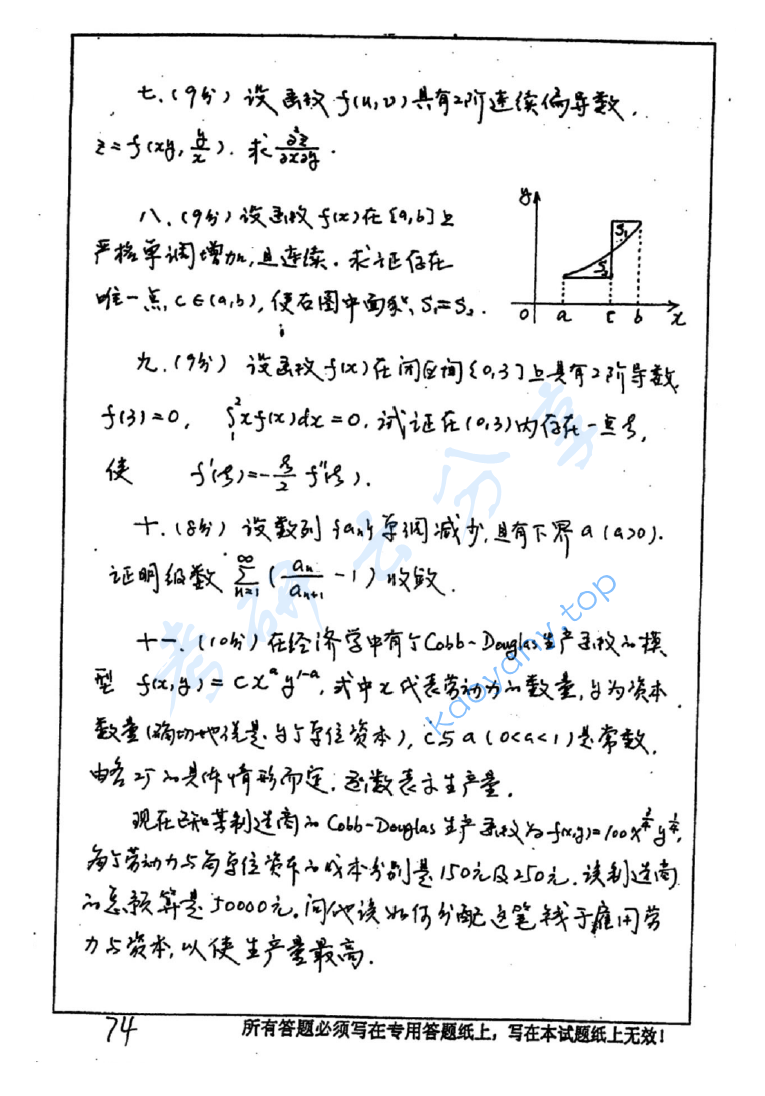 七.(9分) 设函数 f(u,v) 具有2阶连续偏导数,
z=f(xy, y/x). 求 ∂²z/∂x∂y.
八.(9分) 设函数 f(x) 在 [a,b] 上
严格单调增加,且连续. 求证存在
唯一点, c∈(a,b), 使右图中面积, S₁=S₂.
y S₁ S₂ o a c b x
九.(9分) 设函数 f(x) 在闭区间 [0,3] 上具有2阶导数
f(3)=0, ∫₁² x f(x)dx=0, 试证在 (0,3) 内存在一点ξ,
使 f'(ξ)=-ξ/2 f''(ξ).
十.(8分) 设数列 {aₙ} 单调减少,且有下界 a (a>0).
证明级数 ∑_{n=1}^∞ (aₙ/aₙ₊₁ -1) 收敛.
十一.(10分) 在经济学中有个Cobb-Douglas生产函数的模
型 f(x,y)=cx^a y^{1-a}, 式中x代表劳动力的数量,y为资本
数量(确切地说是y个单位资本), c与a (0<a<1) 是常数,
由各工厂的具体情形而定.函数表示生产量.
现在已知某制造商的Cobb-Douglas生产函数为f(x,y)=100x^{3/4}y^{1/4},
每个劳动力与每单位资本的成本分别是150元及250元.该制造商
的总预算是50000元.问他该如何分配这笔钱于雇用劳
力与资本,以使生产量最高.
考研云分享
kaoyany.top
74
所有答题必须写在专用答题纸上,写在本试题纸上无效!